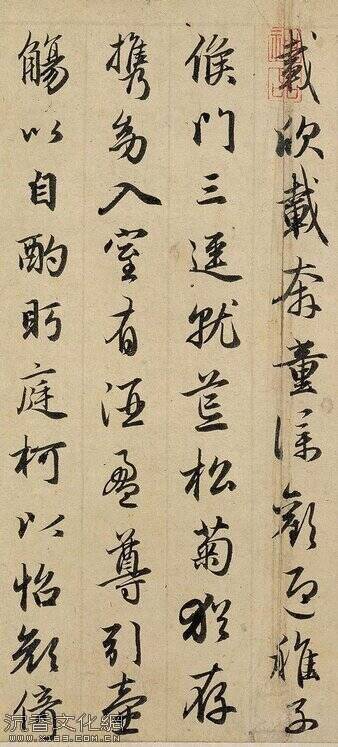 載欣載奔童僕歡迎稚子
候門三逕就荒松菊猶存
携幼入室有酒盈尊引壺
觴以自酌眄庭柯以怡顔倚
沉香文化網